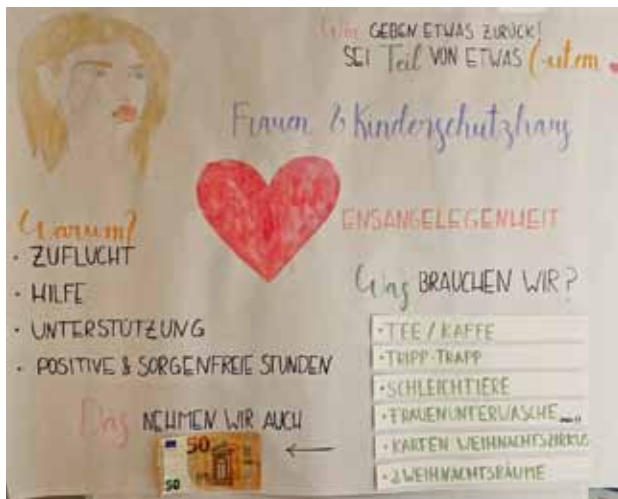 Wir GEBEN ETWAS ZURÜCK!
SEI Teil VON ETWAS Gutem
Frauen & Kinderschutzhaus
ENSANGELEGENHEIT
Warum?
· ZUFLUCHT
· HILFE
· UNTERSTÜTZUNG
· POSITIVE & SORGENFREIE STUNDEN
Was BRAUCHEN WIR?
· TEE / KAFFE
· TRIPP-TRAPP
· SCHLEICHTIERE
· FRAUENUNTERWÄSCHE
· KARTEN WEIHNACHTSZIRKUS
· 2 WEIHNACHTSBÄUME
Das NEHMEN WIR AUCH
50
50